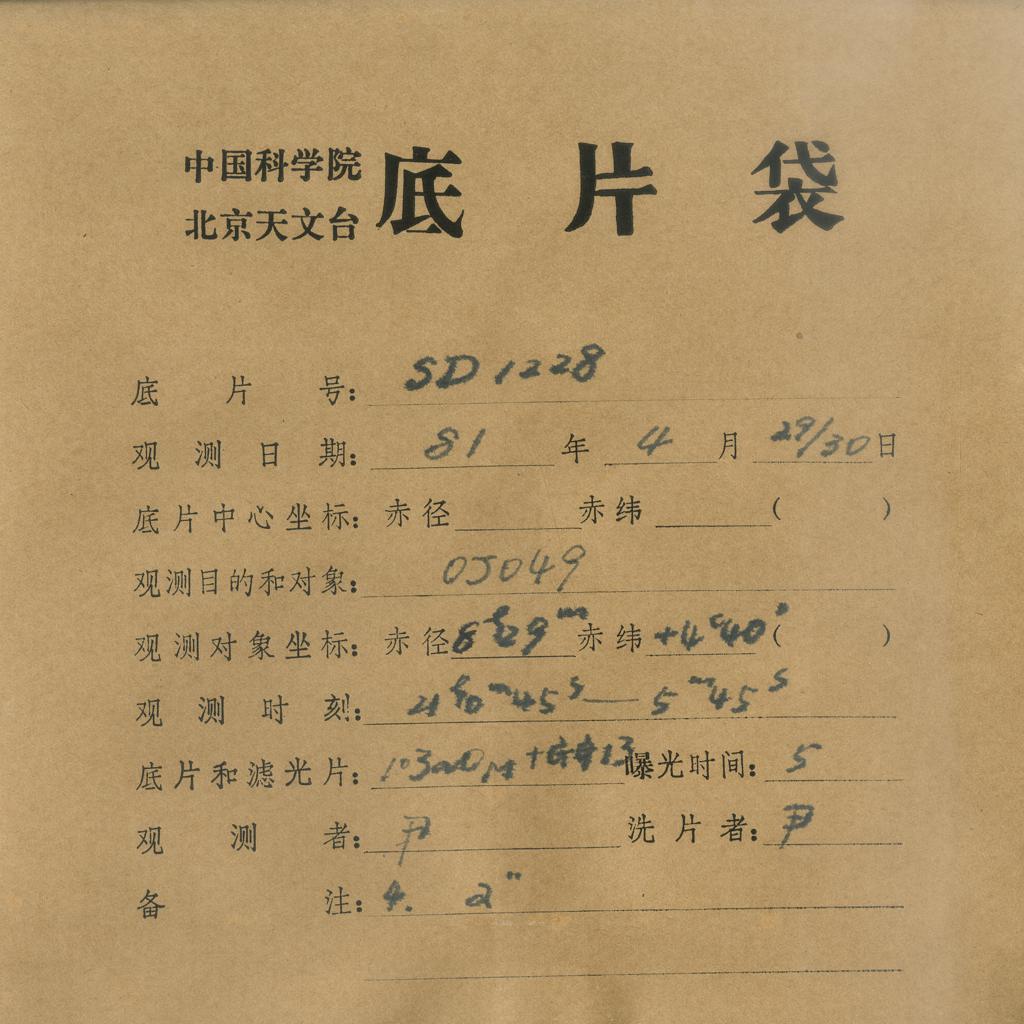 中国科学院
北京天文台
底片袋
底片号: SD 1228
观测日期: 81 年 4 月 29/30 日
底片中心坐标: 赤径 赤纬 ( )
观测目的和对象: OJ049
观测对象坐标: 赤径 8h29m 赤纬 +4°40' ( )
观测时刻: 21h0m45s — 5m45s
底片和滤光片: 103aO 曝光时间: 5
观测者: 尹 洗片者: 尹
备注: 4. 2"